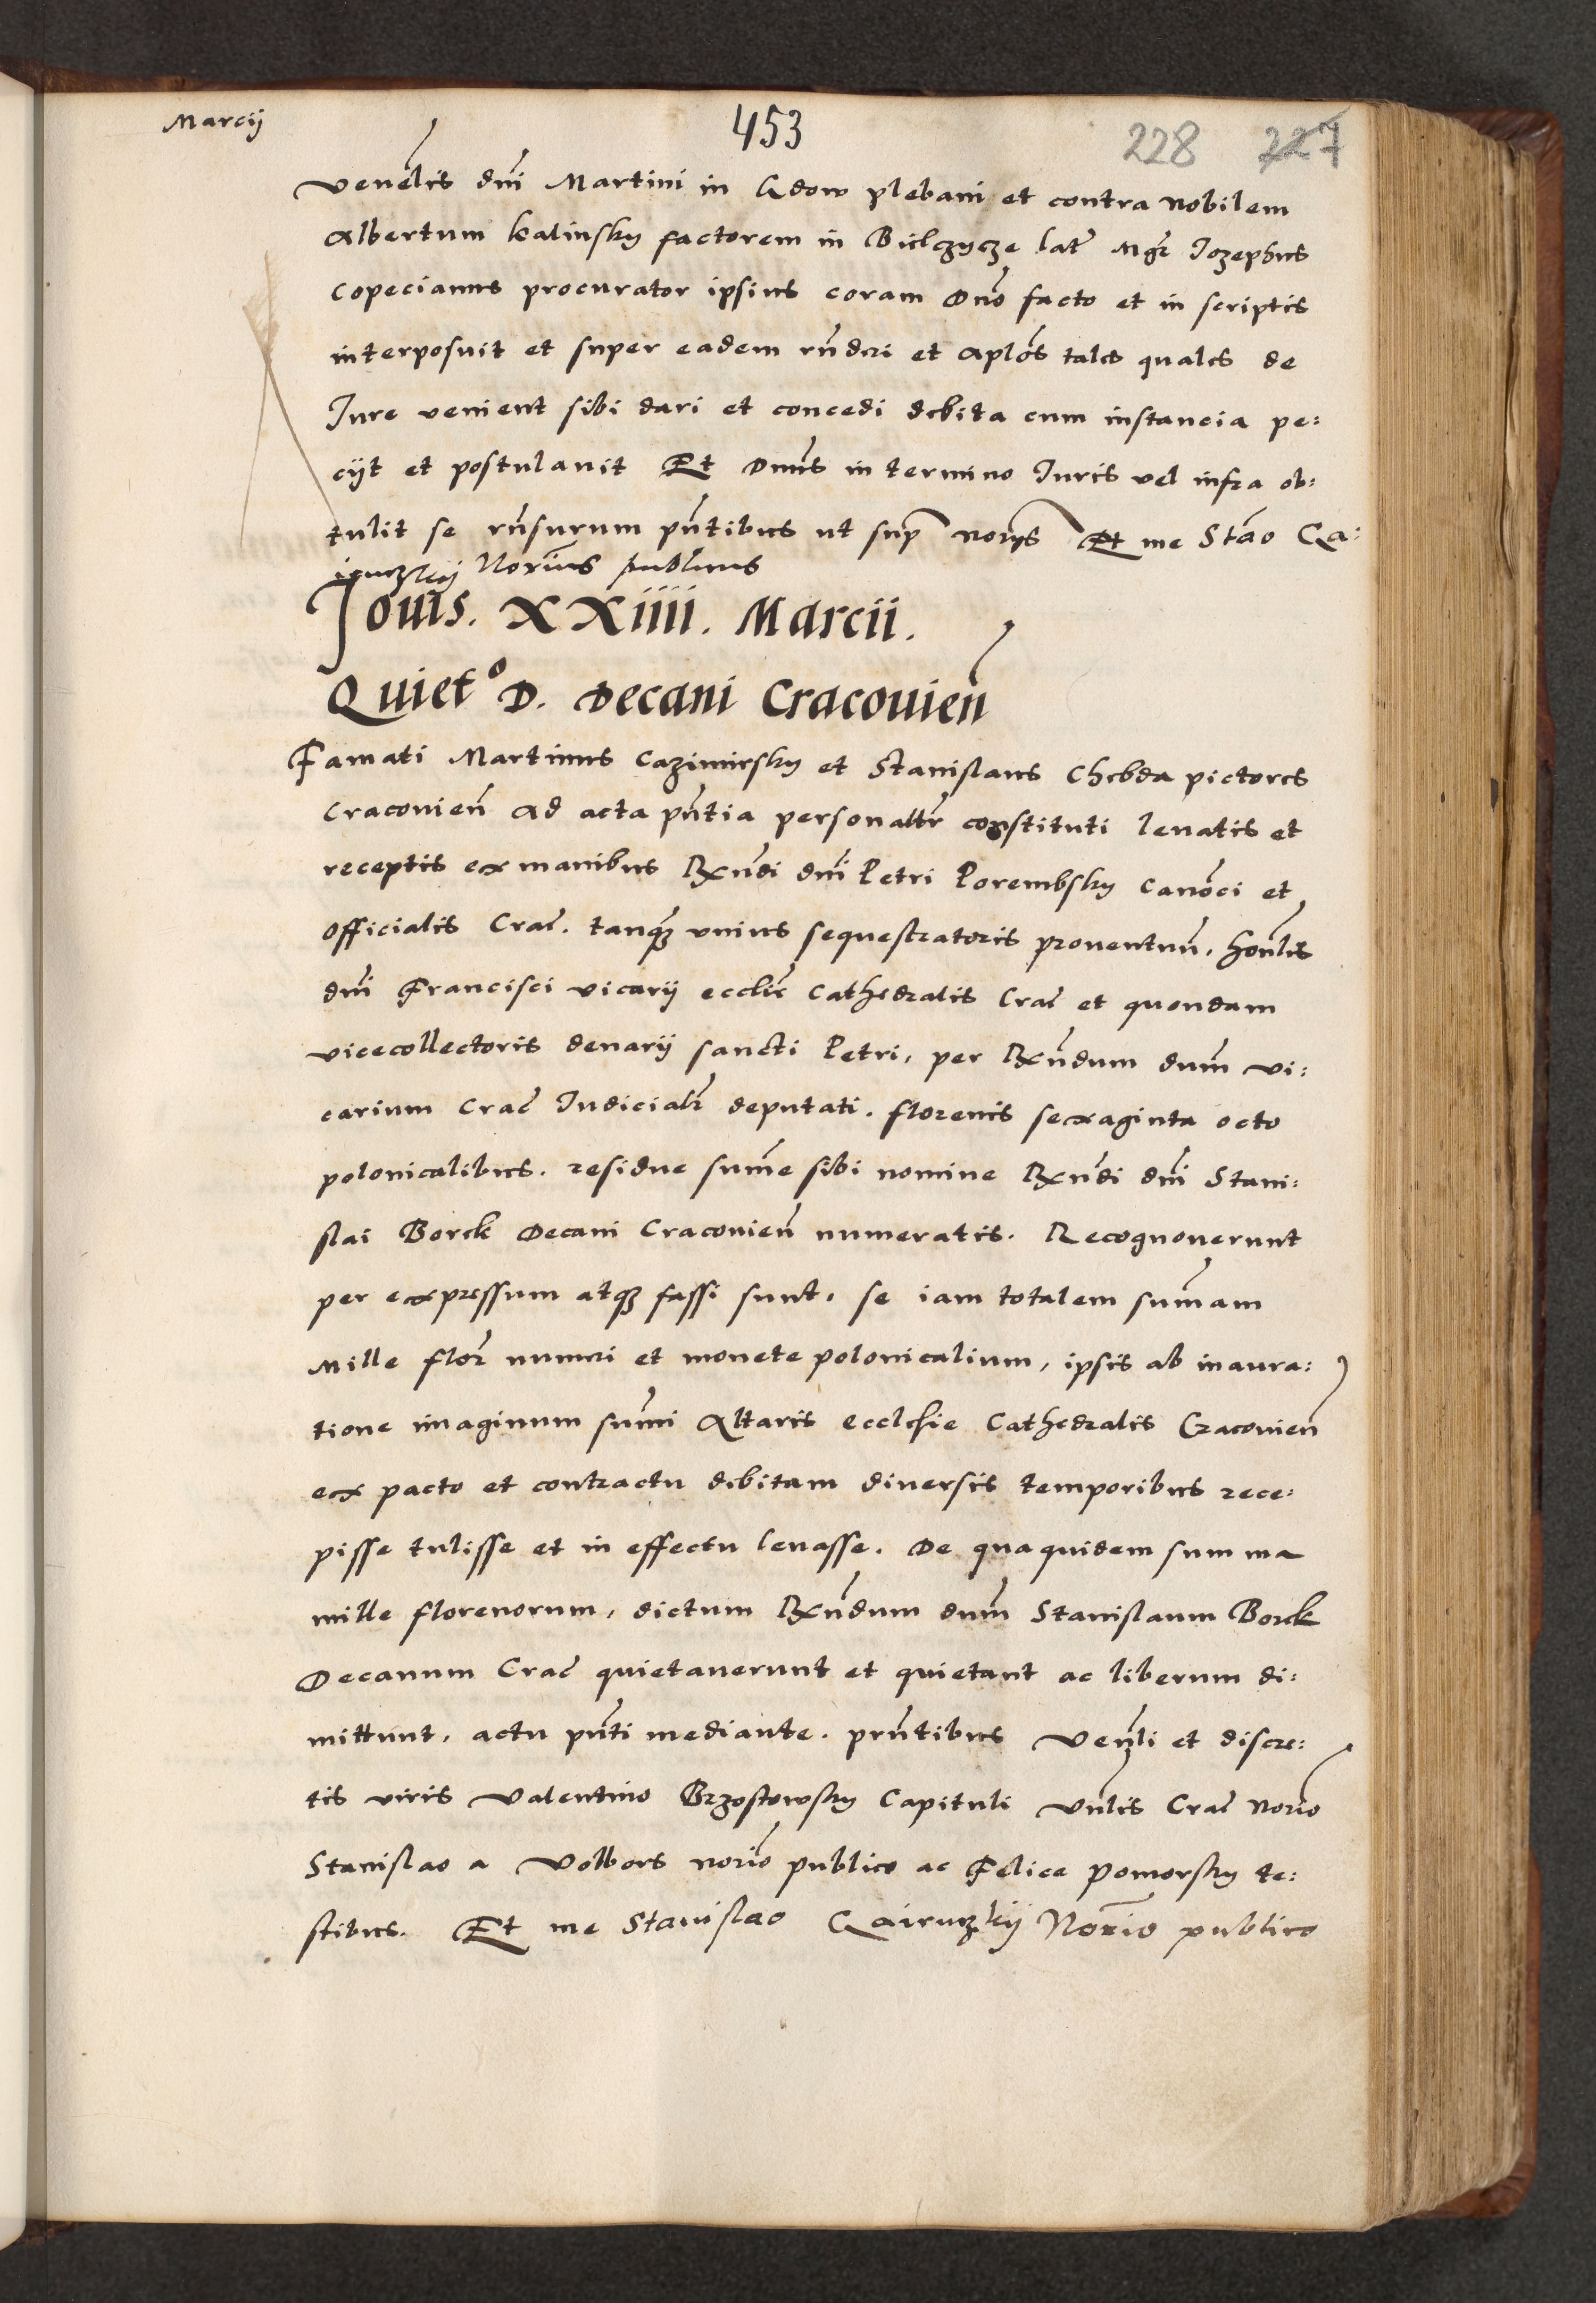 Marcij
453
228 227
venelis dni Martini in Gdow plebani et contra nobilem
Albertum kalinsky factorem in Bielczycze lat Mgr Iozephus
Copecianus procurator ipsius coram Dno facto et in scriptis
interposuit et super eadem rnderi et aplos tales quales de
Iure venient sibi dari et concedi debita cum instancia pe:
cijt et postulavit Et Dnus in termino Iuris vel infra ob:
tulit se rnsurum pntibus ut sup norijs Et me Stao Ga:
Norius publicus
Iouis. XXIIII. Marcii.
Quieto D. Decani Cracouien
Famati Martinus Cazimirsky et Stanislaus Chebda pictores
Cracouien ad acta pntia personaltr constituti levatis et
receptis ex manibus Rxndi dni Petri Porembsky Canoci et
officialis Crac. tanq vnius sequestratoris proventuu, honlis
dni Francisci vicarij ecclie Cathedralis Crac et quondam
vicecollectoris denarij sancti Petri, per Rxndum dnum vi:
carium Crac Iudicialr deputati. florenis sexaginta octo
polonicalibus. residue sume sibi nomine Rxndi dni Stani:
slai Borck Decani Cracouien numeratis. Recognoverunt
per expressum atq fassi sunt, se iam totalem sumam
Mille flor numeri et monete polonicalium, ipsis ab inaura:
tione imaginum sumi Altaris ecclesie Cathedralis Cracouien
ex pacto et contractu debitam diversis temporibus rece:
pisse tulisse et in effectu levasse. De qua quidem summa
mille florenorum, dictum Rxndum dnum Stanislaum Borck
Decanum Crac quietaverunt et quietant ac liberum di:
mittunt, actu pnti mediante. prntibus Venli et discre:
tis viris Valentino Brzostowsky Capituli Vnlis Crac norio
Stanislao a Volbors norio publico ac Felice Pomorsky te:
stibus. Et me Stanislao Norio publico